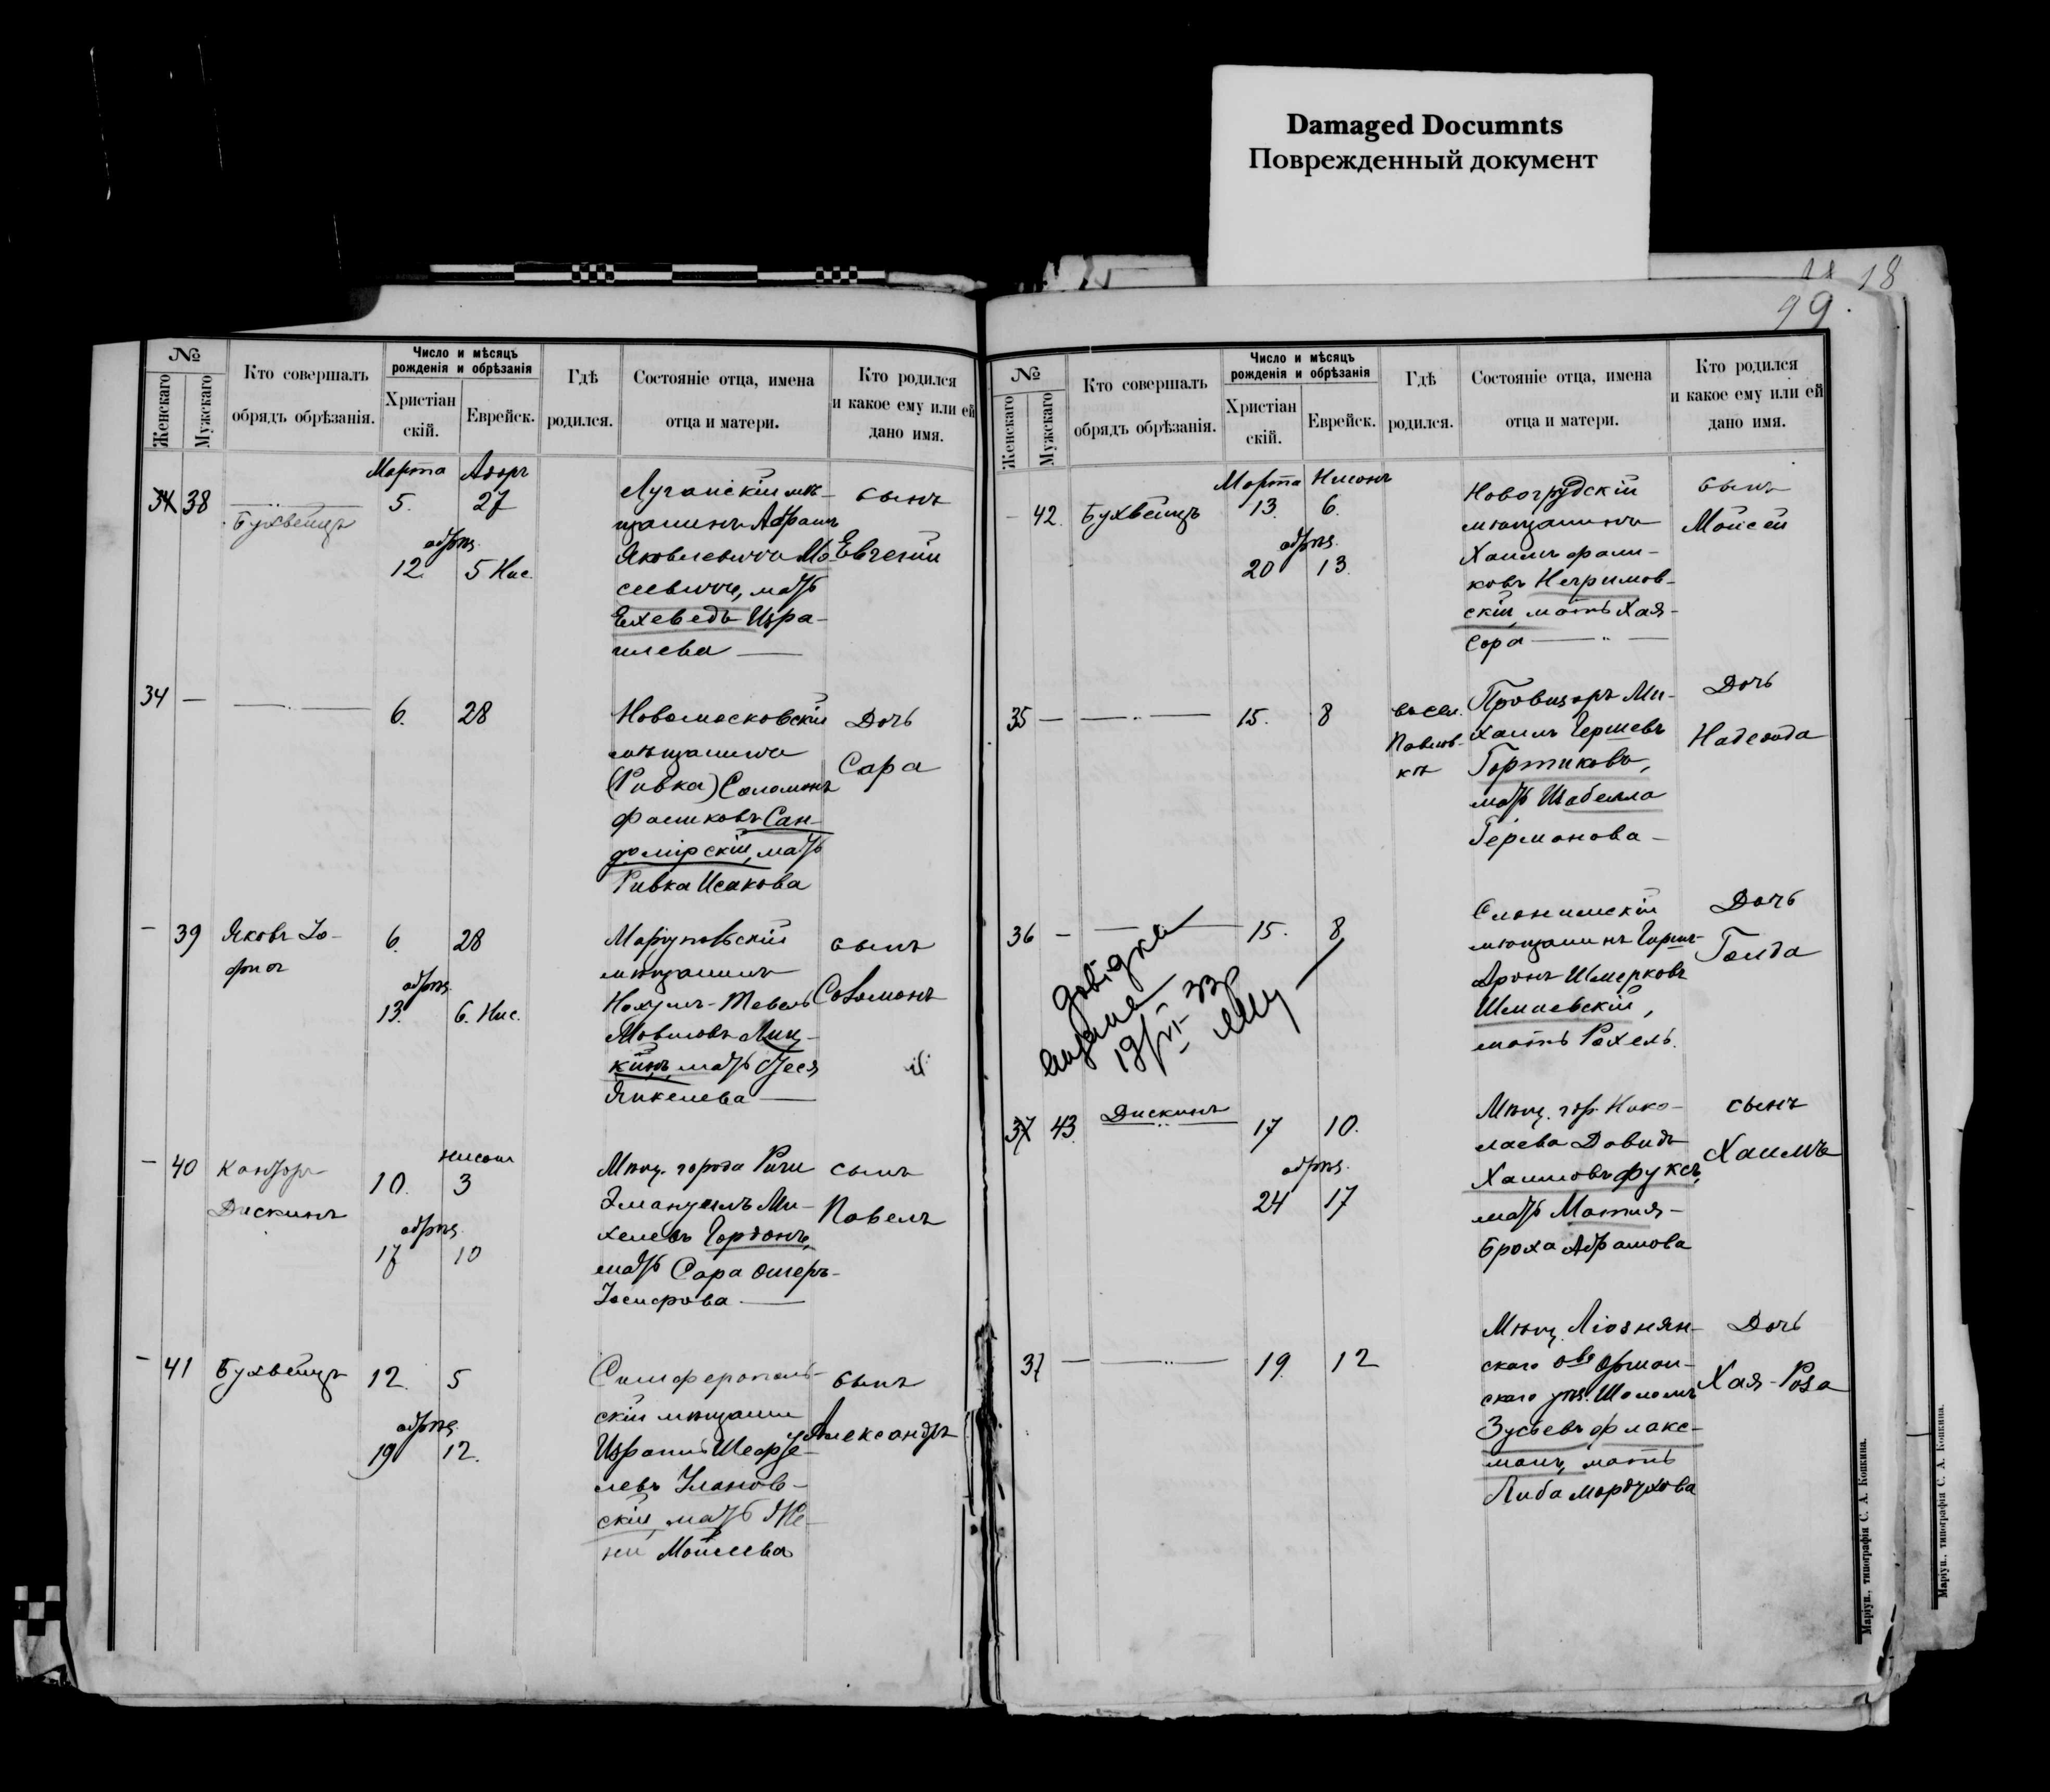 Damaged Documnts
Поврежденный документ
18
99.
№
Женскаго
Мужскаго
Кто совершалъ
обрядъ обрѣзанія.
Число и мѣсяцъ
рожденія и обрѣзанія
Христіан
скій.
Еврейск.
Гдѣ
родился.
Состояніе отца, имена
отца и матери.
Кто родился
и какое ему или ей
дано имя.
38
Бухвейцъ
Марта Адаръ
5. 27
обрѣз.
12. 5 Нис.
Луганскій мѣ-
щанинъ Абрамъ
Яковлевичъ Мо-
сеевичъ, мать
Еохеведъ Изра-
илева
сынъ
Евгеній
34 —
6. 28
Новомосковскій
мѣщанинъ
(Ривка) Соломонъ
Фалиховъ Сан-
домірскій, мать
Ривка Исакова
Дочь
Сара
— 39
Яковъ Іо-
6. 28
обрѣз.
13. 6. Нис.
Маріупольскій
мѣщанинъ
Нахумъ-Тевель
мать
Янкелева
сынъ
Соломонъ
— 40
Канторъ
Дискинъ
нисанъ
10. 3
обрѣз.
17 10
Мѣщ. города Риги
Эмануилъ Ми-
хелевъ Гордонъ,
мать Сара Ошеръ-
Іосифова
сынъ
Павелъ
— 41
Бухвейцъ
12. 5
обрѣз.
19 12.
Симферополь-
скій мѣщанин
скій, мать
Моисеева
сынъ
Александръ
№
Женскаго
Мужскаго
Кто совершалъ
обрядъ обрѣзанія.
Число и мѣсяцъ
рожденія и обрѣзанія
Христіан
скій.
Еврейск.
Гдѣ
родился.
Состояніе отца, имена
отца и матери.
Кто родился
и какое ему или ей
дано имя.
— 42.
Бухвейцъ
Марта Нисонъ
13. 6.
обрѣз.
20 13.
Новогрудскій
мѣщанинъ
Хаимъ Фали-
ковъ Негримов-
скій, мать Хая-
Сора
сынъ
Мойсей
35 —
15. 8
въ сел.
Павлов-
кѣ
Провизоръ Ми-
хаилъ Гершевъ
Гортиковъ,
мать Изабелла
Германова
Дочь
Надежда
36 —
15. 8
довідка
видана
19/VI 33р
Слонимскій
мѣщанинъ Гирш-
Аронъ Шмерковъ
Шмаевскій,
мать Рохель.
Дочь
Голда
37 43
Дискинъ
17 10.
обрѣз.
24 17
Мѣщ. гор. Нико-
лаева Давидъ
Хаимовъ Фуксъ,
мать
Броха Абрамова
сынъ
Хаимъ
37 —
19. 12
Мѣщ. Ліознян-
скаго о-ва Оршан-
скаго уѣз. Шоломъ
Зусьевъ Флакс-
манъ, мать
Либа Мордухова
Дочь
Хая-Роза
Маріуп., типографія С. А. Копкина.
Маріуп., типографія С. А. Копкина.